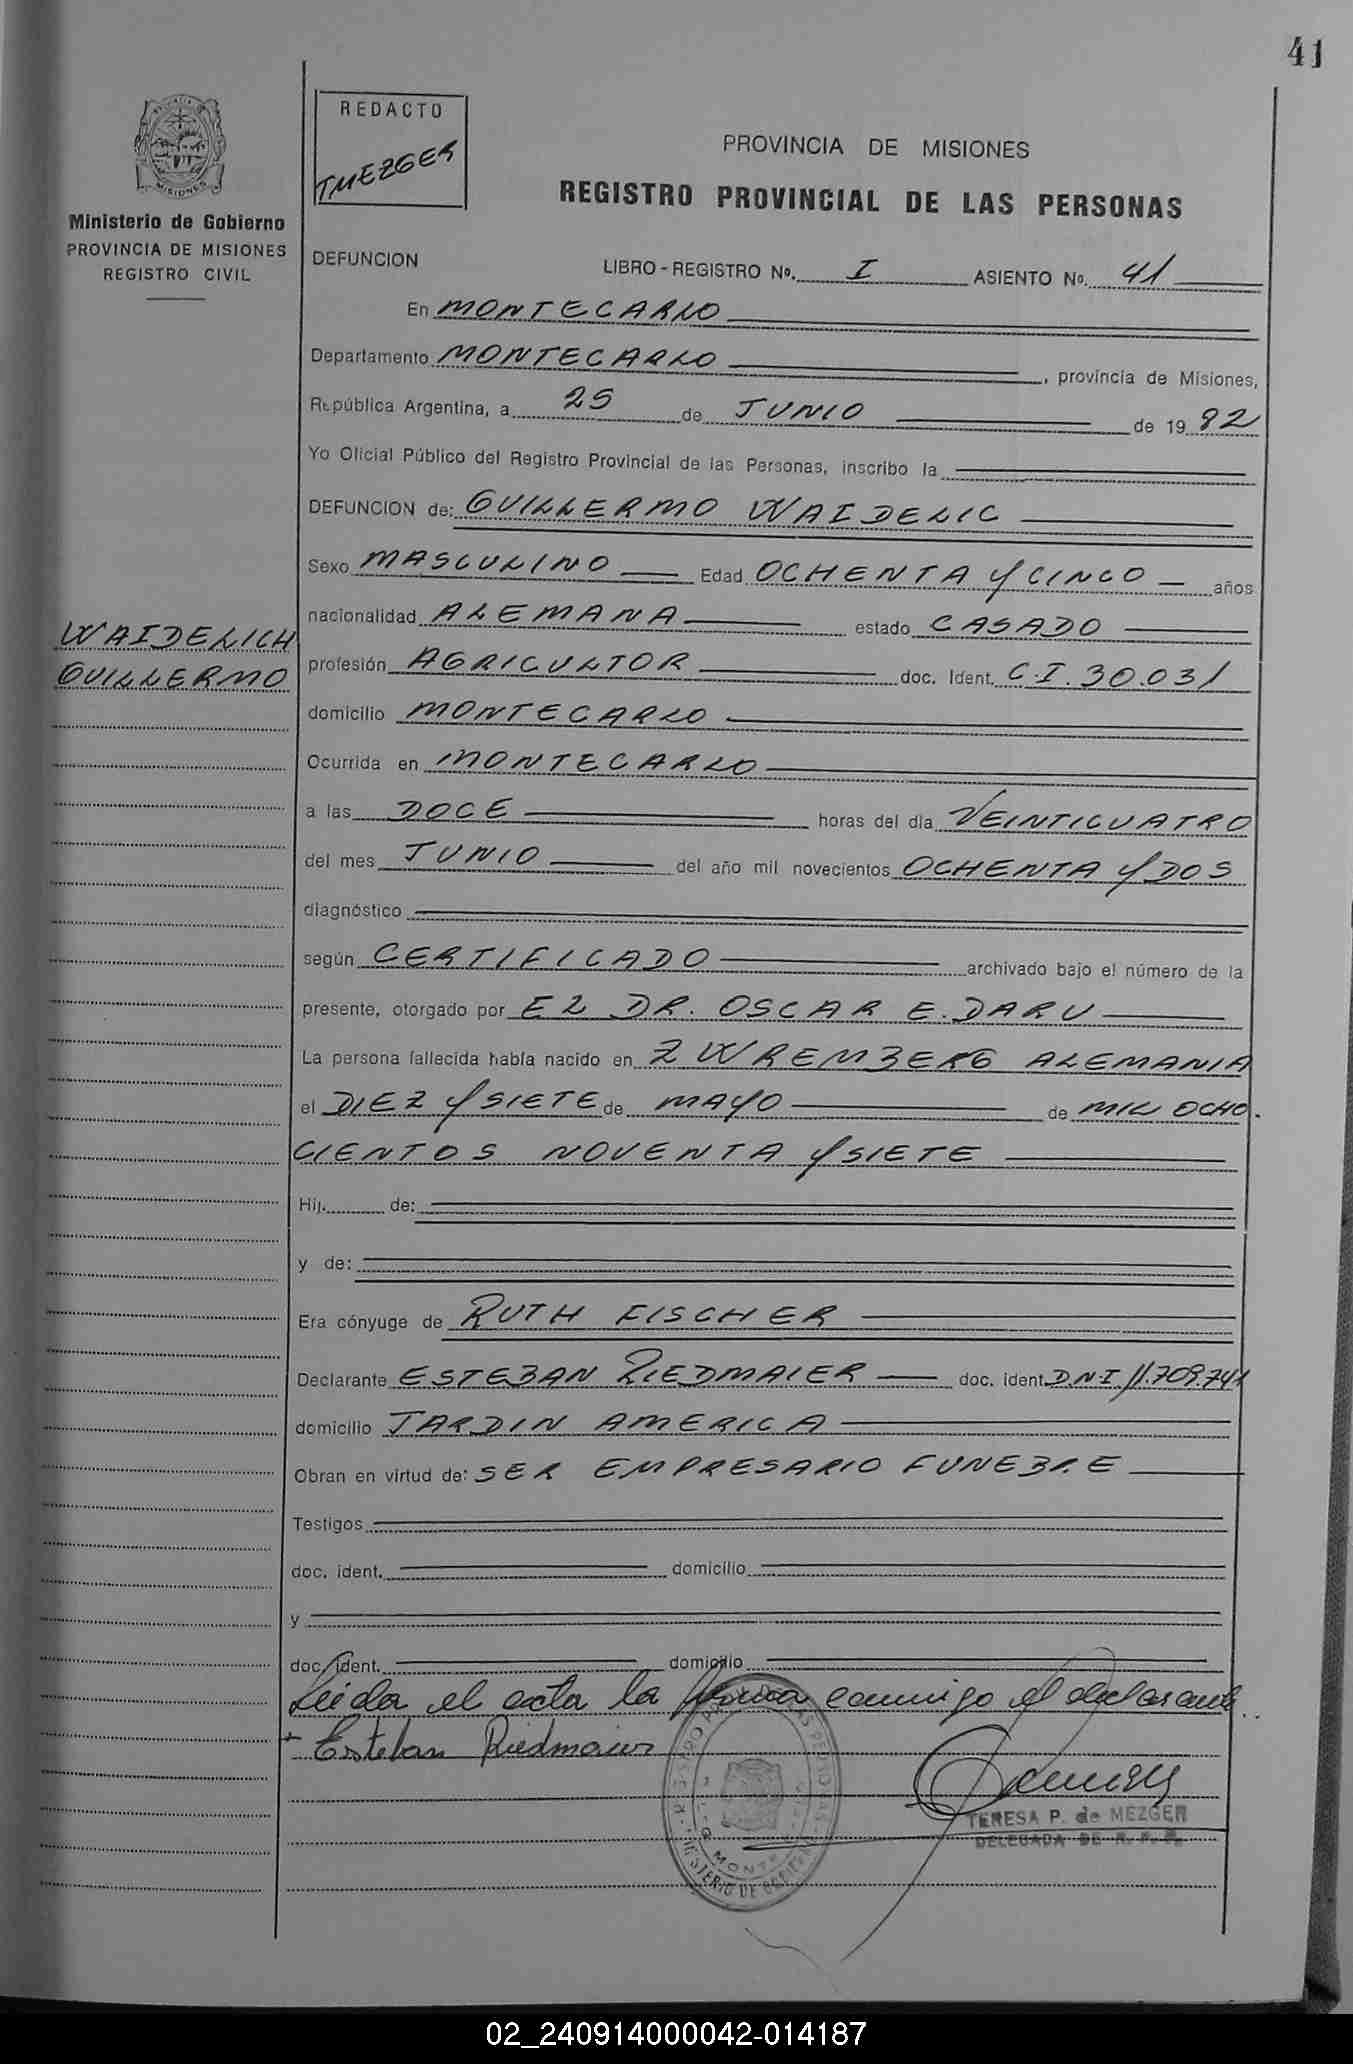 41
REDACTO
T MEZGER
PROVINCIA DE MISIONES
REGISTRO PROVINCIAL DE LAS PERSONAS
MISIONES
Ministerio de Gobierno
PROVINCIA DE MISIONES
REGISTRO CIVIL
DEFUNCION LIBRO - REGISTRO Nº. I ASIENTO Nº. 41
En MONTECARLO
Departamento MONTECARLO, provincia de Misiones,
República Argentina, a 25 de JUNIO de 19 82
Yo Oficial Público del Registro Provincial de las Personas, inscribo la
DEFUNCION de: GUILLERMO WAIDELIC
Sexo MASCULINO Edad OCHENTA Y CINCO años
nacionalidad ALEMANA estado CASADO
WAIDELICH
GUILLERMO
profesión AGRICULTOR doc. Ident. C.I. 30.031
domicilio MONTECARLO
Ocurrida en MONTECARLO
a las DOCE horas del día VEINTICUATRO
del mes JUNIO del año mil novecientos OCHENTA Y DOS
diagnóstico
según CERTIFICADO archivado bajo el número de la
presente, otorgado por EL DR. OSCAR E. DARU
La persona fallecida había nacido en ZWREMBERG ALEMANIA
el DIEZ Y SIETE de MAYO de MIL OCHO.
CIENTOS NOVENTA Y SIETE
Hij. de:
y de:
Era cónyuge de RUTH FISCHER
Declarante ESTEBAN RIEDMAIER doc. ident. D.N.I. 11.709.741
domicilio JARDIN AMERICA
Obran en virtud de: SER EMPRESARIO FUNEBRE
Testigos
doc. ident. domicilio
y
doc. ident. domicilio
Leida el acta la firma conmigo el declarante..
+ Esteban Riedmaier
TERESA P. de MEZGER
DELEGADA DE R. P. P.
MINISTERIO DE GOBIERNO
02_240914000042-014187